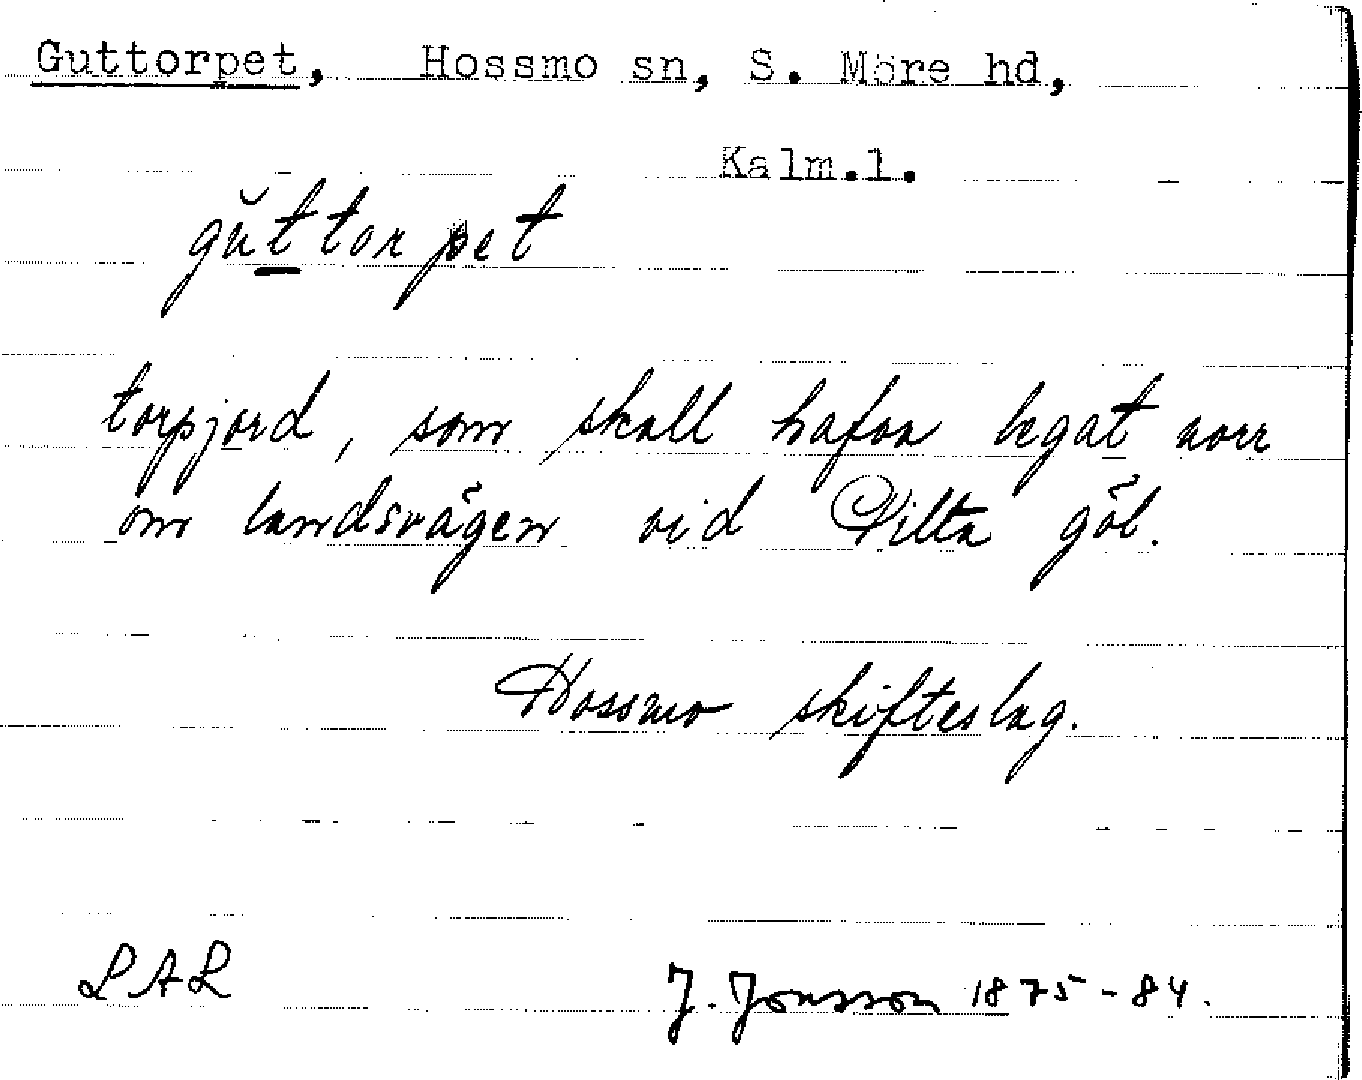 Guttorpet, Hossmo sn, S. Möre hd,
Kalm.l.
gŭttorpet
torpjord, som skall hafva legat norr
om landsvägen vid Pilta göl.
Hossmo skifteslag.
LAL
J. Jonsson 1875-84.